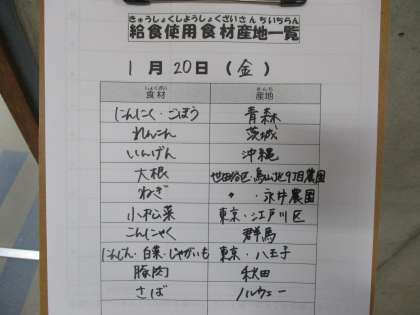 きゅうしょくしようしょくざいさんちいちらん
給食使用食材産地一覧
1月20日（金）
しょくざい さんち
食材 産地
にんにく・ごぼう 青森
れんこん 茨城
いんげん 沖縄
大根 世田谷区・烏山北9丁目農園
ねぎ 〃・永井農園
小松菜 東京・江戸川区
こんにゃく 群馬
にんじん・白菜・じゃがいも 東京・八王子
豚肉 秋田
さば ノルウェー